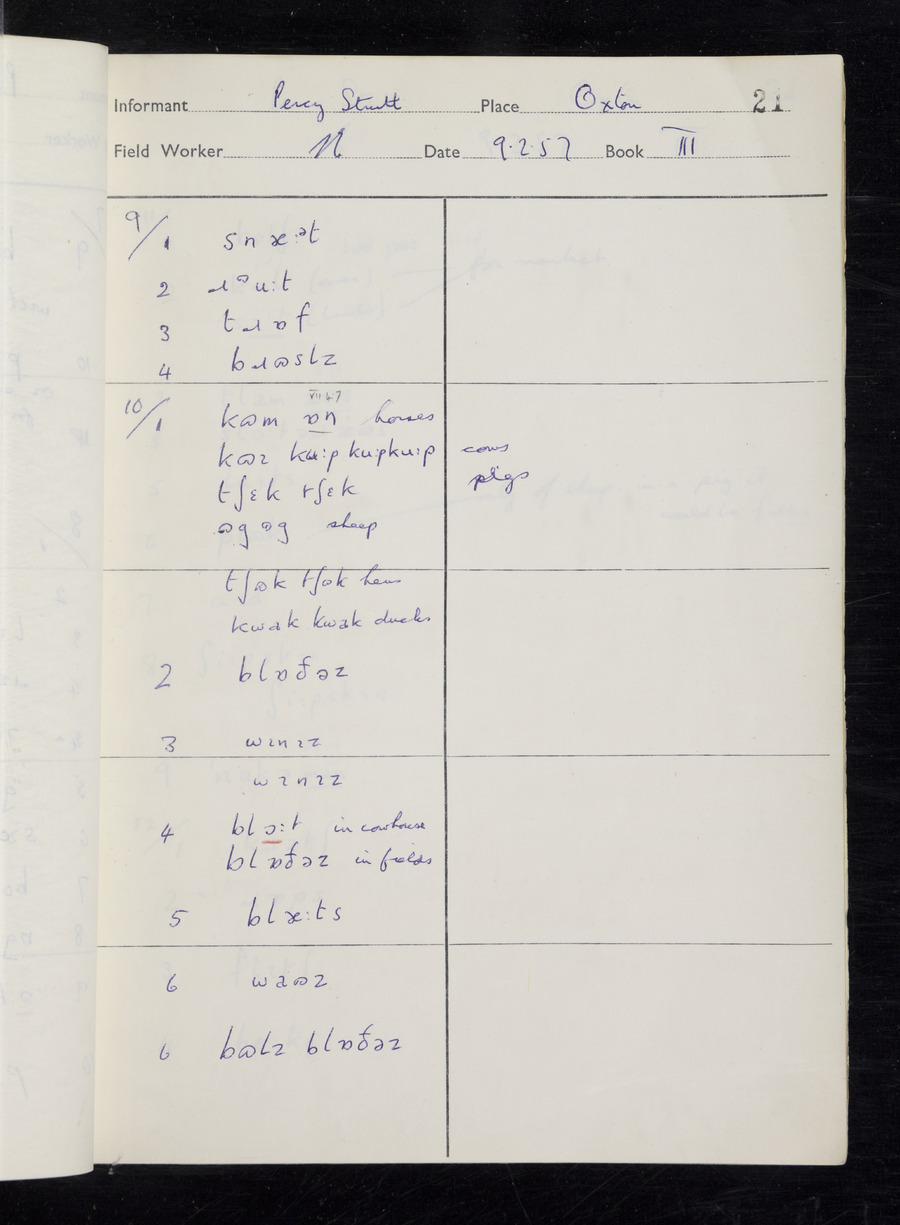 Informant Percy Strutt Place Oxton 21
Field Worker Date 9.2.57 Book III
9/1 snæ:ᵊt
2 ɹᶷu:t
3 tɹɒf
4 bɹʊslz
VII 4.7
10/1 kʊm ɒn horses
kʊz ku:p ku:pku:p cows
tʃɛk tʃɛk pigs
ʊg ʊg sheep
tʃʊk tʃʊk hens
kwak kwak ducks
2 blɒðəz
3 wɪnɪz
wɪnɪz
4 blɔ:t in cowhouse
blɒðəz in fields
5 blæ:ts
6 waʊz
6 bʊlz blɒðəz